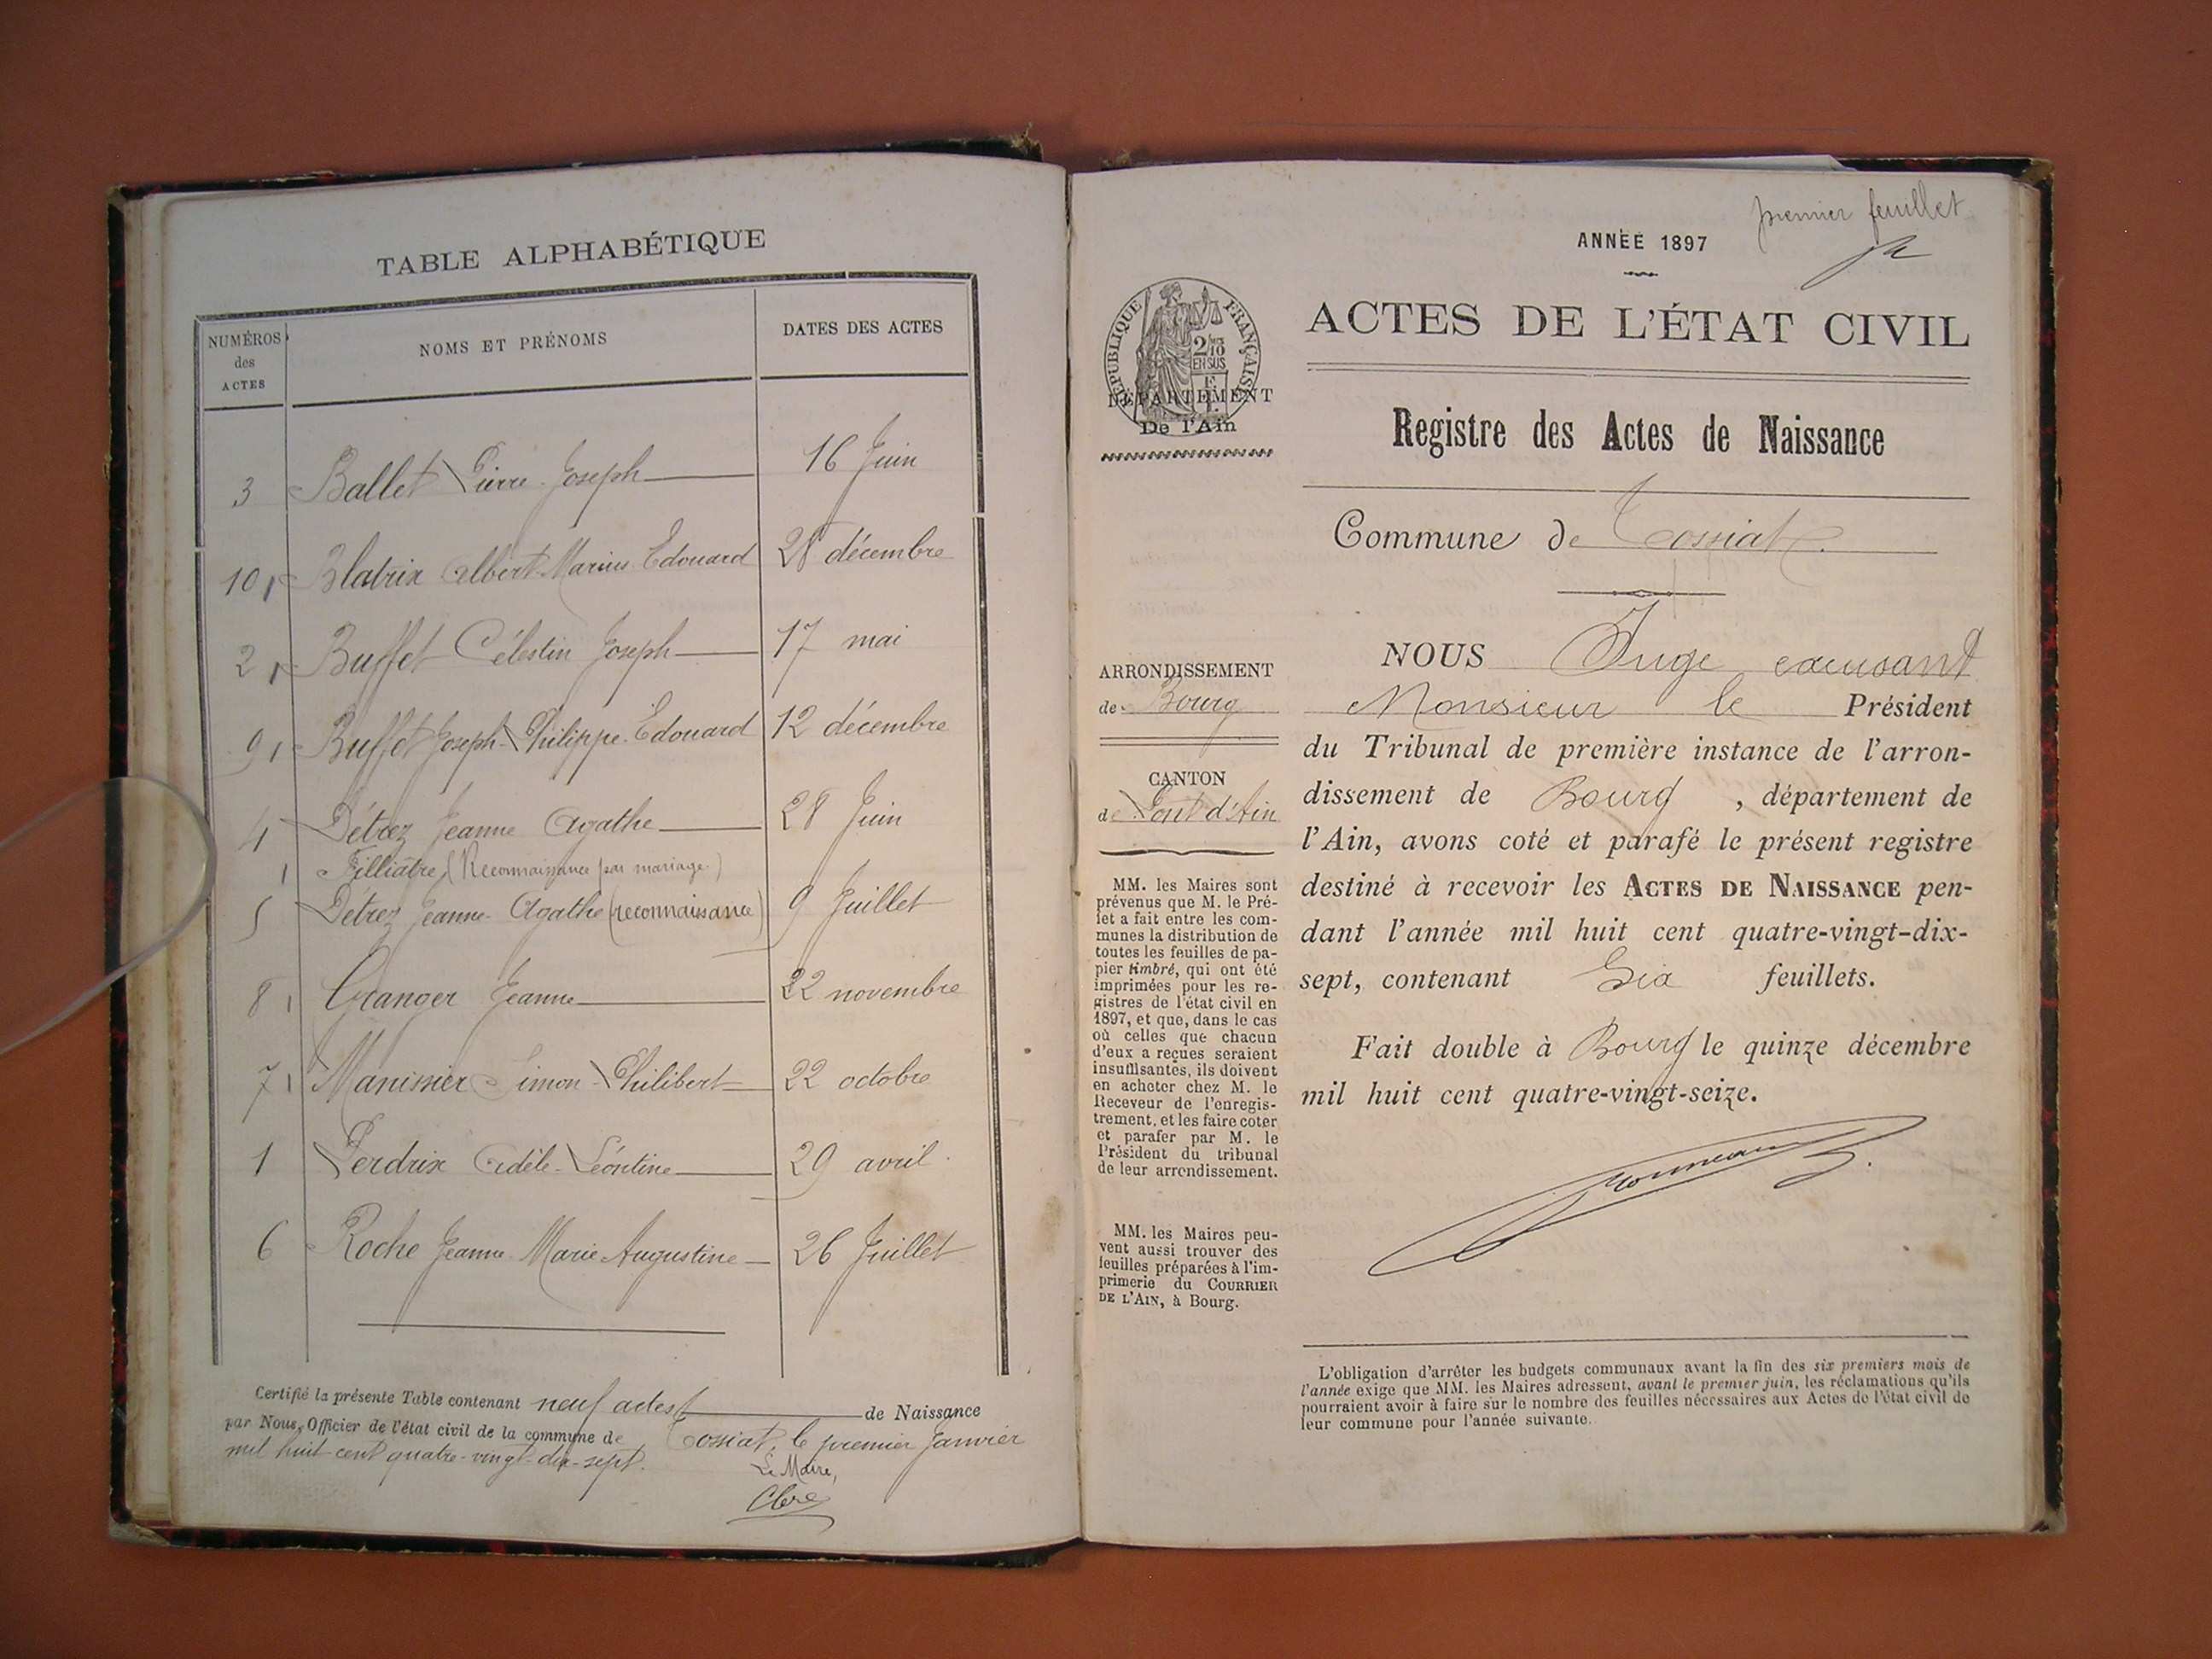 TABLE ALPHABÉTIQUE
NUMÉROS des ACTES
NOMS ET PRÉNOMS
DATES DES ACTES
3 Ballet Pierre Joseph 16 Juin
10 Blatrix Albert Marius Edouard 28 décembre
2 Buffet Célestin Joseph 17 mai
9 Buffet Joseph Philippe Edouard 12 décembre
4 Détrez Jeanne Agathe 28 Juin
Filliatre (Reconnaissance par mariage)
5 Détrez Jeanne Agathe (reconnaissance) 9 Juillet
8 Granger Jeanne 22 novembre
7 Manissier Simon Philibert 22 octobre
1 Perdrix Adèle Léontine 29 avril
6 Roche Jeanne Marie Augustine 26 Juillet
Certifié la présente Table contenant neuf actes de Naissance
par Nous, Officier de l'état civil de la commune de Tossiat, le premier Janvier
mil huit cent quatre-vingt-dix-sept.
Le Maire,
premier feuillet
ANNÉE 1897
ACTES DE L'ÉTAT CIVIL
RÉPUBLIQUE FRANÇAISE
2/10
EN SUS
DÉPARTEMENT
De l'Ain
Registre des Actes de Naissance
Commune de Tossiat
ARRONDISSEMENT
de Bourg
CANTON
de Pont d'Ain
MM. les Maires sont
prévenus que M. le Pré-
fet a fait entre les com-
munes la distribution de
toutes les feuilles de pa-
pier timbré, qui ont été
imprimées pour les re-
gistres de l'état civil en
1897, et que, dans le cas
où celles que chacun
d'eux a reçues seraient
insuffisantes, ils doivent
en acheter chez M. le
Receveur de l'enregis-
trement, et les faire coter
et parafer par M. le
Président du tribunal
de leur arrondissement.
MM. les Maires peu-
vent aussi trouver des
feuilles préparées à l'im-
primerie du COURRIER
DE L'AIN, à Bourg.
NOUS Juge excusant
Monsieur le Président
du Tribunal de première instance de l'arron-
dissement de Bourg, département de
l'Ain, avons coté et parafé le présent registre
destiné à recevoir les ACTES DE NAISSANCE pen-
dant l'année mil huit cent quatre-vingt-dix-
sept, contenant Six feuillets.
Fait double à Bourg le quinze décembre
mil huit cent quatre-vingt-seize.
L'obligation d'arrêter les budgets communaux avant la fin des six premiers mois de
l'année exige que MM. les Maires adressent, avant le premier juin, les réclamations qu'ils
pourraient avoir à faire sur le nombre des feuilles nécessaires aux Actes de l'état civil de
leur commune pour l'année suivante.